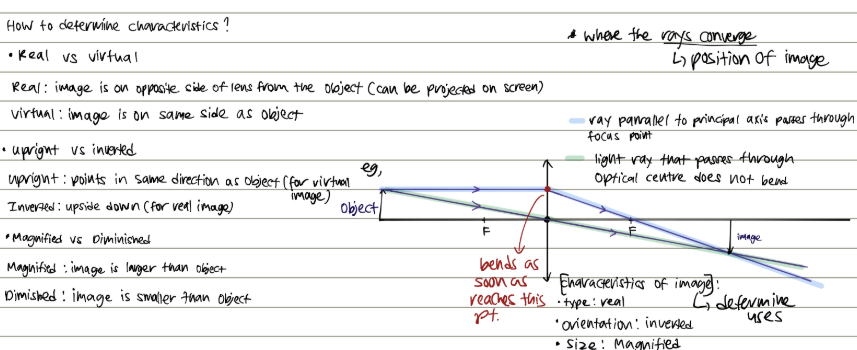 How to determine characteristics?
• Real vs virtual
Real: image is on opposite side of lens from the object (can be projected on screen)
virtual: image is on same side as object
• upright vs inverted
upright: points in same direction as object (for virtual image)
Inverted: upside down (for real image)
• Magnified vs Diminished
Magnified: image is larger than object
Dimished: image is smaller than object
* where the rays converge
↳ position of image
ray parrallel to principal axis passes through
focus point
light ray that passes through
optical centre does not bend
eg,
object
F
F
image
bends as
soon as
reaches this
pt.
[Characteristics of image]:
↳ determine
uses
• type: real
• orientation: inverted
• size: Magnified